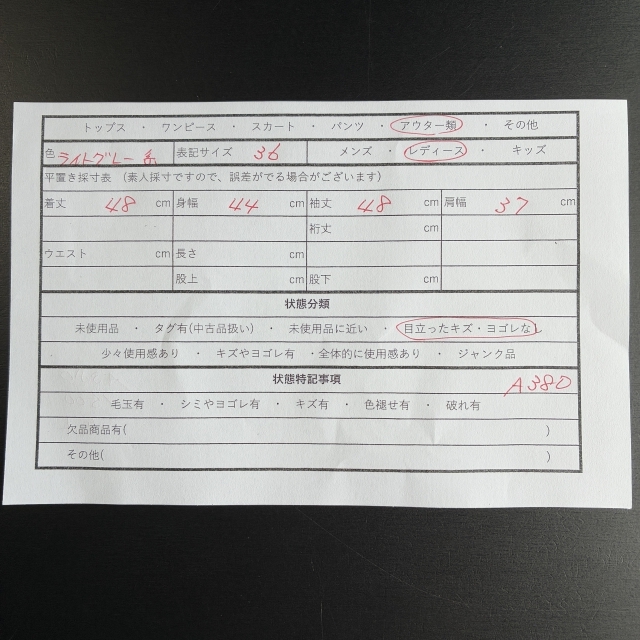 トップス ・ ワンピース ・ スカート ・ パンツ ・ アウター類 ・ その他
色 ライトグレー系 表記サイズ 36 メンズ ・ レディース ・ キッズ
平置き採寸表 (素人採寸ですので、誤差がでる場合がございます)
着丈 48 cm 身幅 44 cm 袖丈 48 cm 肩幅 37 cm
裄丈 cm
ウエスト cm 長さ cm
股上 cm 股下 cm
状態分類
未使用品 ・ タグ有(中古品扱い) ・ 未使用品に近い ・ 目立ったキズ・ヨゴレなし
少々使用感あり ・ キズやヨゴレ有 ・全体的に使用感あり ・ ジャンク品
状態特記事項 A380
毛玉有 ・ シミやヨゴレ有 ・ キズ有 ・ 色褪せ有 ・ 破れ有
欠品商品有( )
その他( )